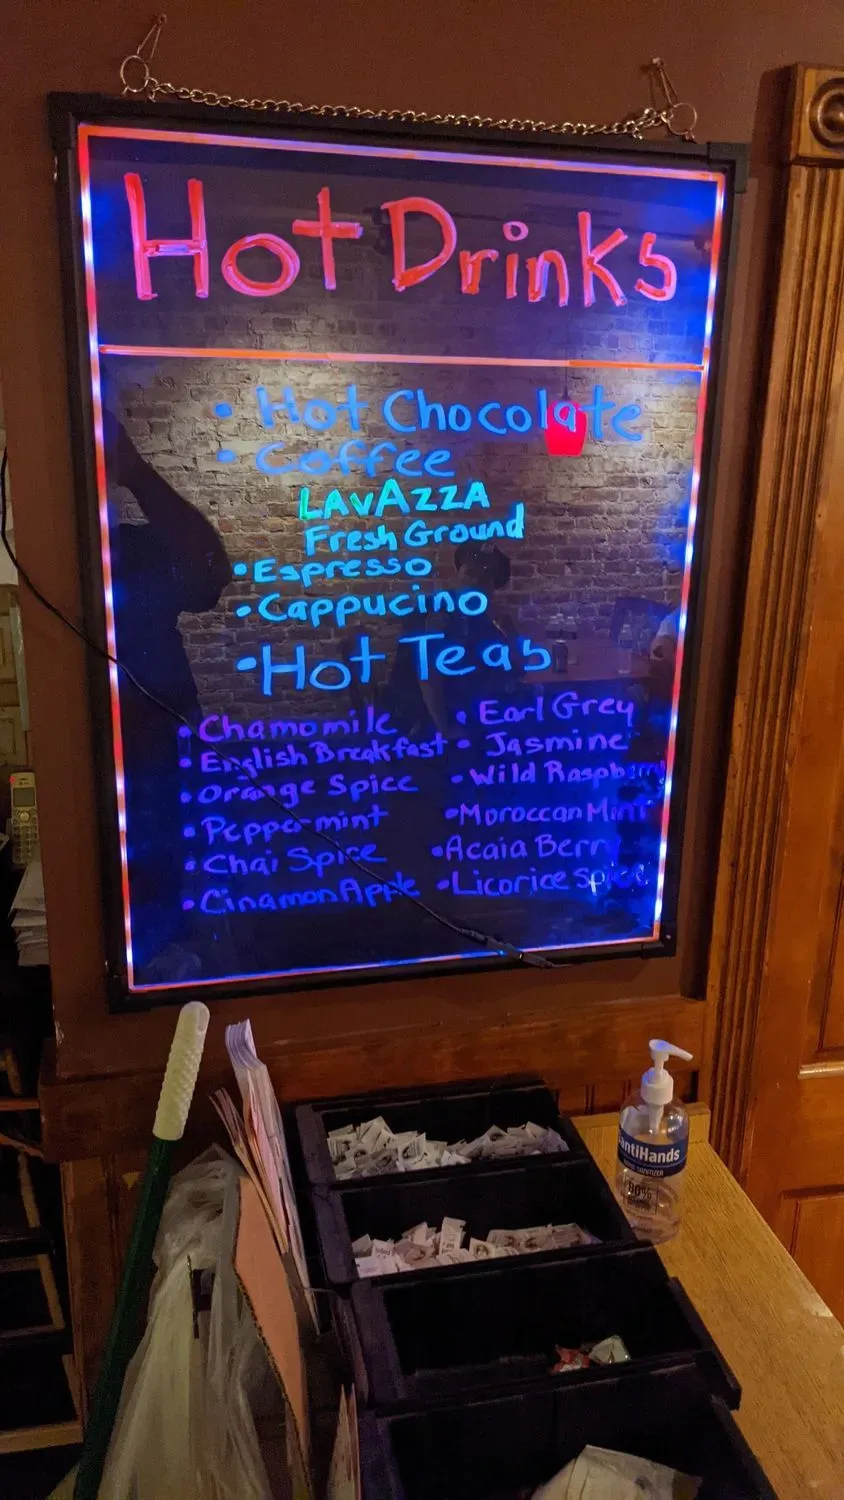 Hot Drinks
• Hot Chocolate
• Coffee
LAVAZZA
Fresh Ground
• Espresso
• Cappucino
• Hot Teas
• Chamomile
• English Breakfast
• Orange Spice
• Peppermint
• Chai Spice
• Cinamon Apple
• Earl Grey
• Jasmine
• Wild Raspberry
• Moroccan Mint
• Acaia Berry
• Licorice Spice
SantiHands
80%